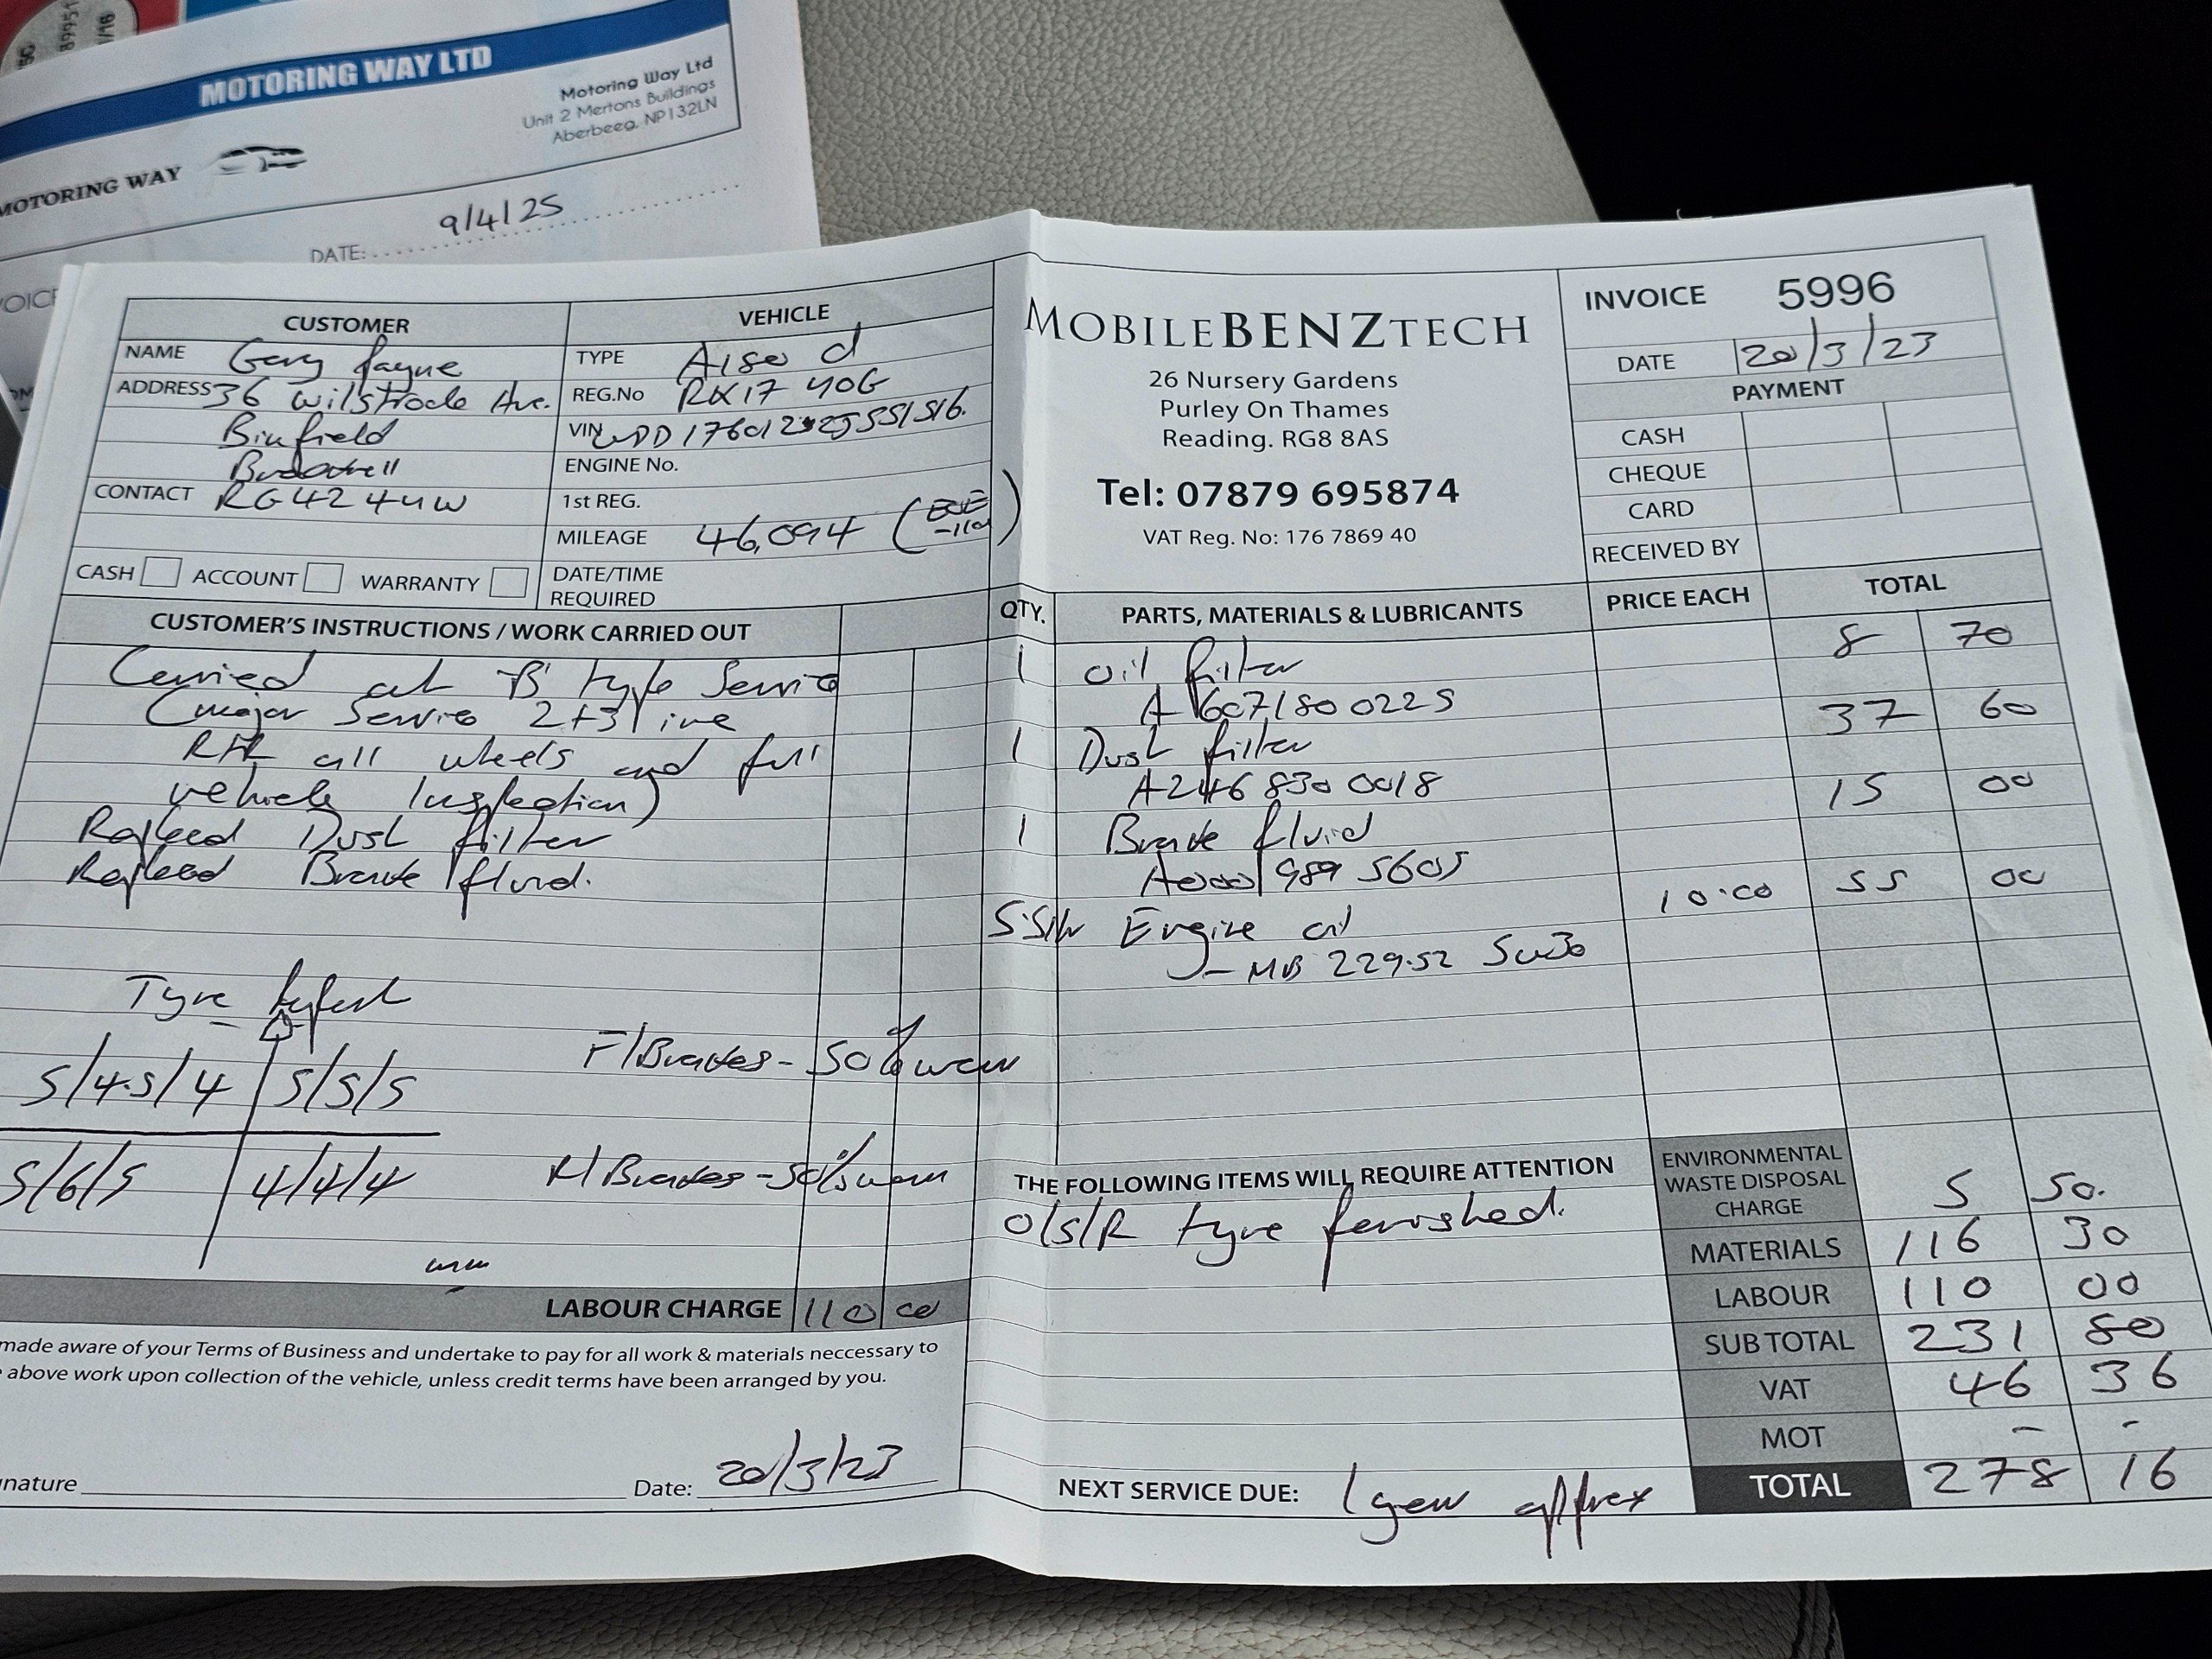 MOTORING WAY LTD
Motoring Way Ltd
Unit 2 Mertons Buildings
Aberbeeg, NP132LN
MOTORING WAY
DATE: 9/4/25
CUSTOMER
NAME Gary Payne
ADDRESS 36 Wilstrode Ave.
Binfield
CONTACT RG42 4UW
CASH ACCOUNT WARRANTY
VEHICLE
TYPE A180 d
REG.No RX17
VIN
ENGINE No.
1st REG.
MILEAGE 46,094
DATE/TIME
REQUIRED
MOBILEBENZTECH
26 Nursery Gardens
Purley On Thames
Reading. RG8 8AS
Tel: 07879 695874
VAT Reg. No: 176 7869 40
INVOICE 5996
DATE 20/3/23
PAYMENT
CASH
CHEQUE
CARD
RECEIVED BY
CUSTOMER'S INSTRUCTIONS / WORK CARRIED OUT
Carried out 'B' type Service
(major Service 2+3
all wheels and full
vehicle Inspection)
Replaced Dust filter
Replaced Brake fluid.
Tyre report
5/4.5/4 5/5/5
5/6/5 4/4/4
mm
F/Brakes - 50% worn
R/Brakes - 50% worn
LABOUR CHARGE 110 00
made aware of your Terms of Business and undertake to pay for all work & materials neccessary to
above work upon collection of the vehicle, unless credit terms have been arranged by you.
Date: 20/3/23
QTY. PARTS, MATERIALS & LUBRICANTS PRICE EACH TOTAL
1 Oil filter 8 70
A 607 180 0225
1 Dust filter 37 60
A246 830 0018
1 Brake fluid 15 00
A000 989 5605
Engine oil 10.00 55 00
- MB 229.52 5w30
THE FOLLOWING ITEMS WILL REQUIRE ATTENTION
O/S/R tyre perished.
NEXT SERVICE DUE: 1 year approx
ENVIRONMENTAL
WASTE DISPOSAL
CHARGE 5 50.
MATERIALS 116 30
LABOUR 110 00
SUB TOTAL 231 80
VAT 46 36
MOT - -
TOTAL 278 16